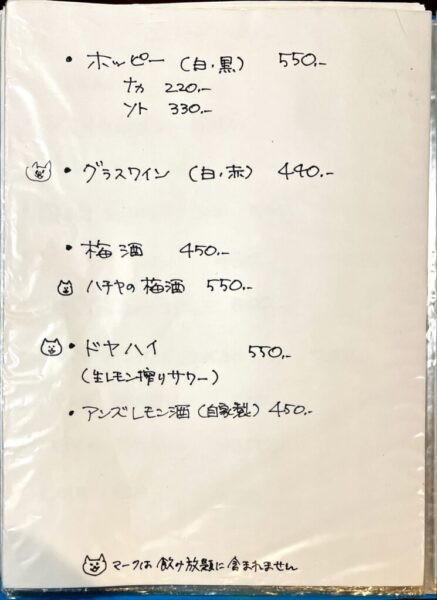 ・ホッピー (白・黒) 550.-
ナカ 220.-
ソト 330.-
・グラスワイン (白・赤) 440.-
・梅酒 450.-
ハチヤの梅酒 550.-
・ドヤハイ 550.-
(生レモン搾りサワー)
・アンズレモン酒 (自家製) 450.-
マークは飲み放題に含まれません